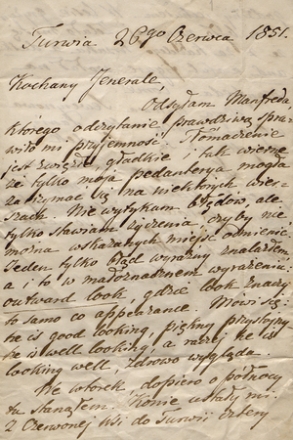 Turwia 26go Czerwca 1851.
Kochany Jenerale,
Odsyłam Manfreda,
którego odczytanie prawdziwą spra-
wiło mi przyjemność. Tłomaczenie
jest zwięzłe, gładkie i tak wierne
że tylko moja pedanterya mogła
zatrzymać się na niektórych wier-
szach. Nie wytykam błędów, ale
tylko stawiam życzenia, czyby nie
można wskazanych miejsc odmienić.
Jeden tylko błąd wyraźny znalazłem,
a i to w małoznacznem wyrażeniu:
outward look, gdzie look znaczy
to samo co appearance. Mówi się:
he is good looking, piękny, przystojny
he is well looking, a raczej he is
looking well, zdrowo wygląda.
We wtorek dopiero o północy
tu stanąłem. Konie ustały mi.
Z Czerwonej Wsi do Turwii cztery